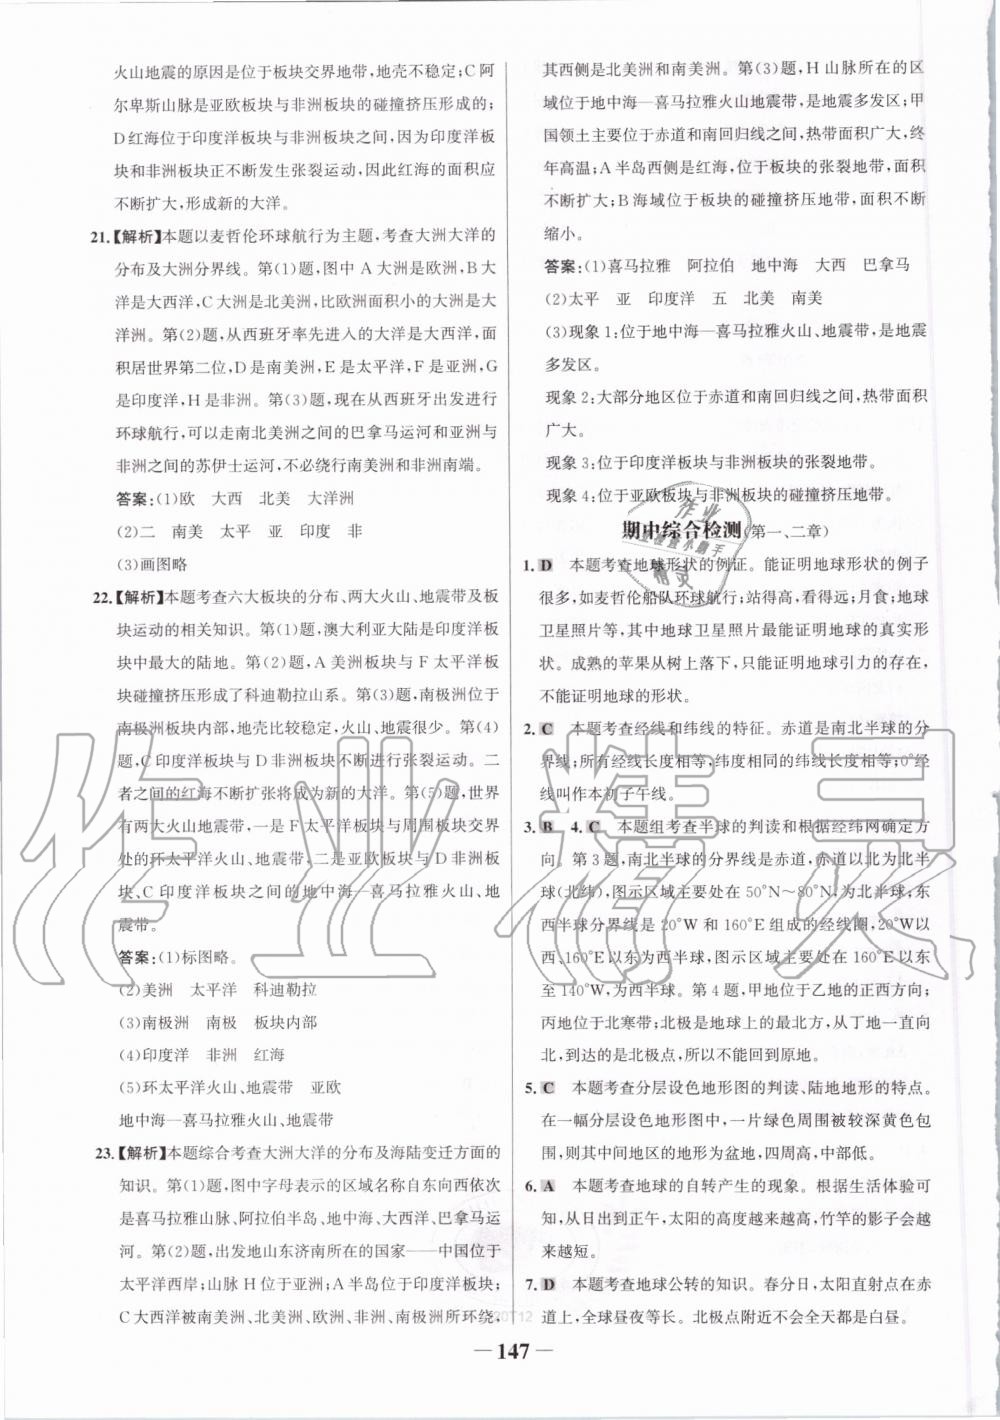 火山地震的原因是位于板块交界地带,地壳不稳定;C阿
尔卑斯山脉是亚欧板块与非洲板块的碰撞挤压形成的;
D红海位于印度洋板块与非洲板块之间,因为印度洋板
块和非洲板块正不断发生张裂运动,因此红海的面积应
不断扩大,形成新的大洋。
21.【解析】本题以麦哲伦环球航行为主题,考查大洲大洋的
分布及大洲分界线。第(1)题,图中A大洲是欧洲,B大
洋是大西洋,C大洲是北美洲,比欧洲面积小的大洲是大
洋洲。第(2)题,从西班牙率先进入的大洋是大西洋,面
积居世界第二位,D是南美洲,E是太平洋,F是亚洲,G
是印度洋,H是非洲。第(3)题,现在从西班牙出发进行
环球航行,可以走南北美洲之间的巴拿马运河和亚洲与
非洲之间的苏伊士运河,不必绕行南美洲和非洲南端。
答案:(1)欧 大西 北美 大洋洲
(2)二 南美 太平 亚 印度 非
(3)画图略
22.【解析】本题考查六大板块的分布、两大火山、地震带及板
块运动的相关知识。第(1)题,澳大利亚大陆是印度洋板
块中最大的陆地。第(2)题,A美洲板块与F太平洋板
块碰撞挤压形成了科迪勒拉山系。第(3)题,南极洲位于
南极洲板块内部,地壳比较稳定,火山、地震很少。第(4)
题,D非洲板块与C印度洋板块不断进行张裂运动。二
者之间的红海不断扩张将成为新的大洋。第(5)题,世界
有两大火山地震带,一是F太平洋板块与周围板块交界
处的环太平洋火山、地震带,二是亚欧板块与非洲板
块、C印度洋板块之间的地中海—喜马拉雅火山、地
震带。
答案:(1)标图略。
(2)美洲 太平洋 科迪勒拉
(3)南极洲 南极 板块内部
(4)印度洋 非洲 红海
(5)环太平洋火山、地震带 亚欧
地中海—喜马拉雅火山、地震带
23.【解析】本题综合考查大洲大洋的分布及海陆变迁方面的
知识。第(1)题,图中字母表示的区域名称自东向西依次
是喜马拉雅山脉、阿拉伯半岛、地中海、大西洋、巴拿马运
河。第(2)题,出发地山东济南所在的国家——中国位于
太平洋西岸;山脉H位于亚洲;A半岛位于印度洋板块;
C大西洋被南美洲、北美洲、欧洲、非洲、南极洲所环绕,
其西侧是北美洲和南美洲。第(3)题,H山脉所在的区
域位于地中海—喜马拉雅火山地震带,是地震多发区;甲
国领土主要位于赤道和南回归线之间,热带面积广大,终
年高温;A半岛西侧是红海,位于板块的张裂地带,面积
不断扩大;B海域位于板块的碰撞挤压地带,面积不断
缩小。
答案:(1)喜马拉雅 阿拉伯 地中海 大西 巴拿马
(2)太平 亚 印度洋 五 北美 南美
(3)现象1:位于地中海—喜马拉雅火山、地震带,是地震
多发区。
现象2:大部分地区位于赤道和南回归线之间,热带面积
广大。
现象3:位于印度洋板块与非洲板块的张裂地带。
现象4:位于亚欧板块与非洲板块的碰撞挤压地带。
期中综合检测(第一、二章)
1.D 本题考查地球形状的例证。能证明地球形状的例子
很多,如麦哲伦船队环球航行;站得高,看得远;月食;地球
卫星照片等,其中地球卫星照片最能证明地球的真实形
状。成熟的苹果从树上落下,只能证明地球引力的存在,
不能证明地球的形状。
2.C 本题考查经线和纬线的特征。赤道是南北半球的分
界线;所有经线长度相等,纬度相同的纬线长度相等;0°经
线叫作本初子午线。
3.B 4.C 本题组考查半球的判读和根据经纬网确定方
向。第3题,南北半球的分界线是赤道,赤道以北为北半
球(北纬),图示区域主要在50°N～80°N,为北半球,东
西半球分界线是20°W和160°E组成的经线圈,20°W以
西、160°E以东为西半球。图示区域主要在160°E以东
至140°W,为西半球。第4题,甲地位于乙地的正西方向;
丙地位于北寒带;北极是地球上的最北方,从丁地一直向
北,到达的是北极点,所以不能回到原地。
5.C 本题考查分层设色地形图的判读、陆地地形的特点。
在一幅分层设色地形图中,一片绿色周围被较深黄色包
围,则其中间地区的地形为盆地,四周高,中部低。
6.A 本题考查地球的自转产生的现象。根据生活体验可
知,从日出到正午,太阳的高度越来越高,竹竿的影子会越
来越短。
7.D 本题考查地球公转的知识。春分日,太阳直射点在赤
道上,全球昼夜等长。北极点附近不会全天都是白昼。
— 147 —
作业精灵